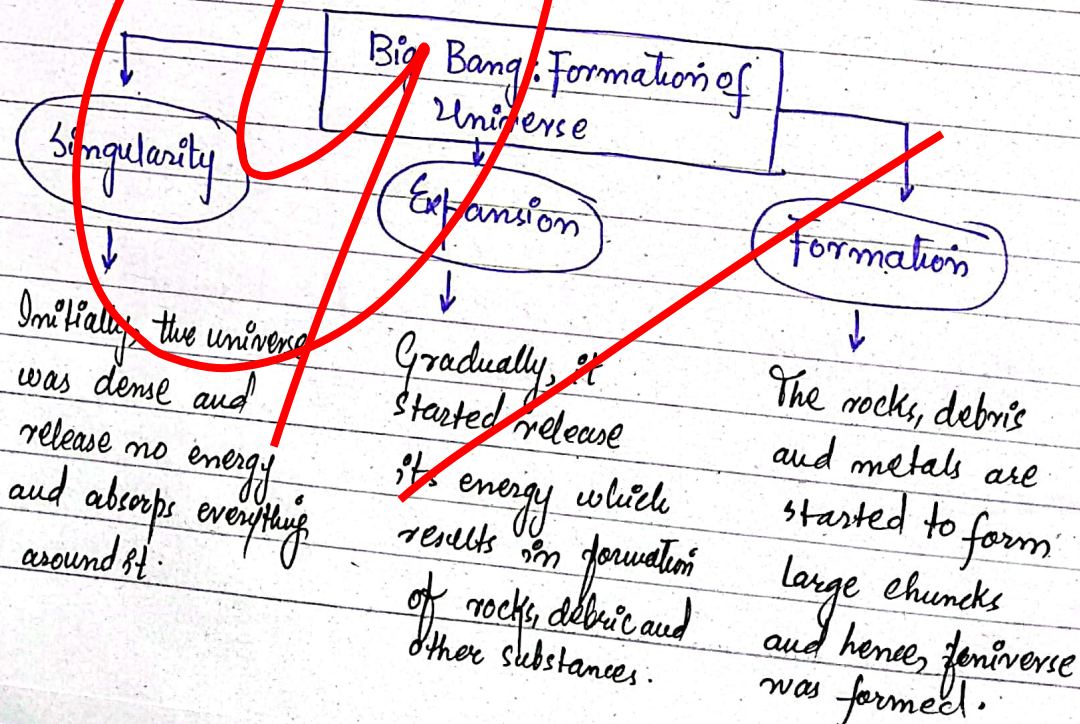 Big Bang : Formation of
Universe
Singularity
Expansion
Formation
Initially, the universe
was dense and
release no energy
and absorps everything
around it.
Gradually, it
started release
its energy which
results in formation
of rocks, debric and
other substances.
The rocks, debris
and metals are
started to form
large chuncks
and hence, universe
was formed.